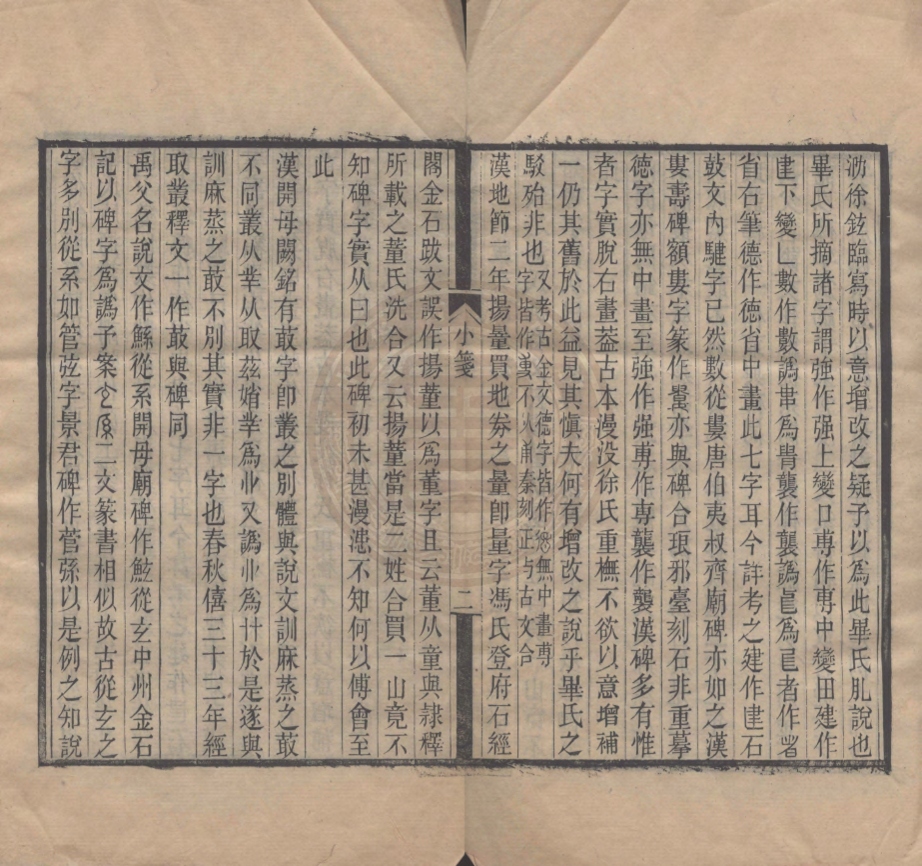 泐徐鉉臨寫時以意增改之疑予以爲此畢氏肊說也
畢氏所摘諸字謂強作强上變口專作専中變田建作
下變乚數作數譌爲貴襲作襲譌爲者作
省右筆德作徳省中畫此七字耳今詳考之建作石
鼓文內騝字已然數從婁唐伯夷叔齊廟碑亦如之漢
婁壽碑額婁字篆作亦與碑合琅邪臺刻石非重摹
德字亦無中畫至強作强專作専襲作襲漢碑多有惟
者字實脫右畫葢古本漫沒徐氏重橅不欲以意增補
一仍其舊於此益見其愼夫何有增改之說乎畢氏之
駮殆非也又考古金文德字皆作無中畫專
字皆作不从甫秦刻正与古文合
漢地節二年揚量買地券之量卽量字馮氏登府石經
小箋 二
閣金石跋文誤作揚董以爲董字且云董从童與隸釋
所載之董氏洗合又云揚董當是二姓合買一山竟不
知碑字實从曰也此碑初未甚漫漶不知何以傅會至
此
漢開母闕銘有菆字卽叢之別體與說文訓麻蒸之菆
不同叢从丵从取茲媘丵爲业又譌业爲卄於是遂與
訓麻蒸之菆不別其實非一字也春秋僖三十三年經
取叢釋文一作菆與碑同
禹父名說文作鯀從系開母廟碑作鮌從玄中州金石
記以碑字爲譌予案二文篆書相似故古從玄之
字多別從系如管弦字景君碑作菅以是例之知說